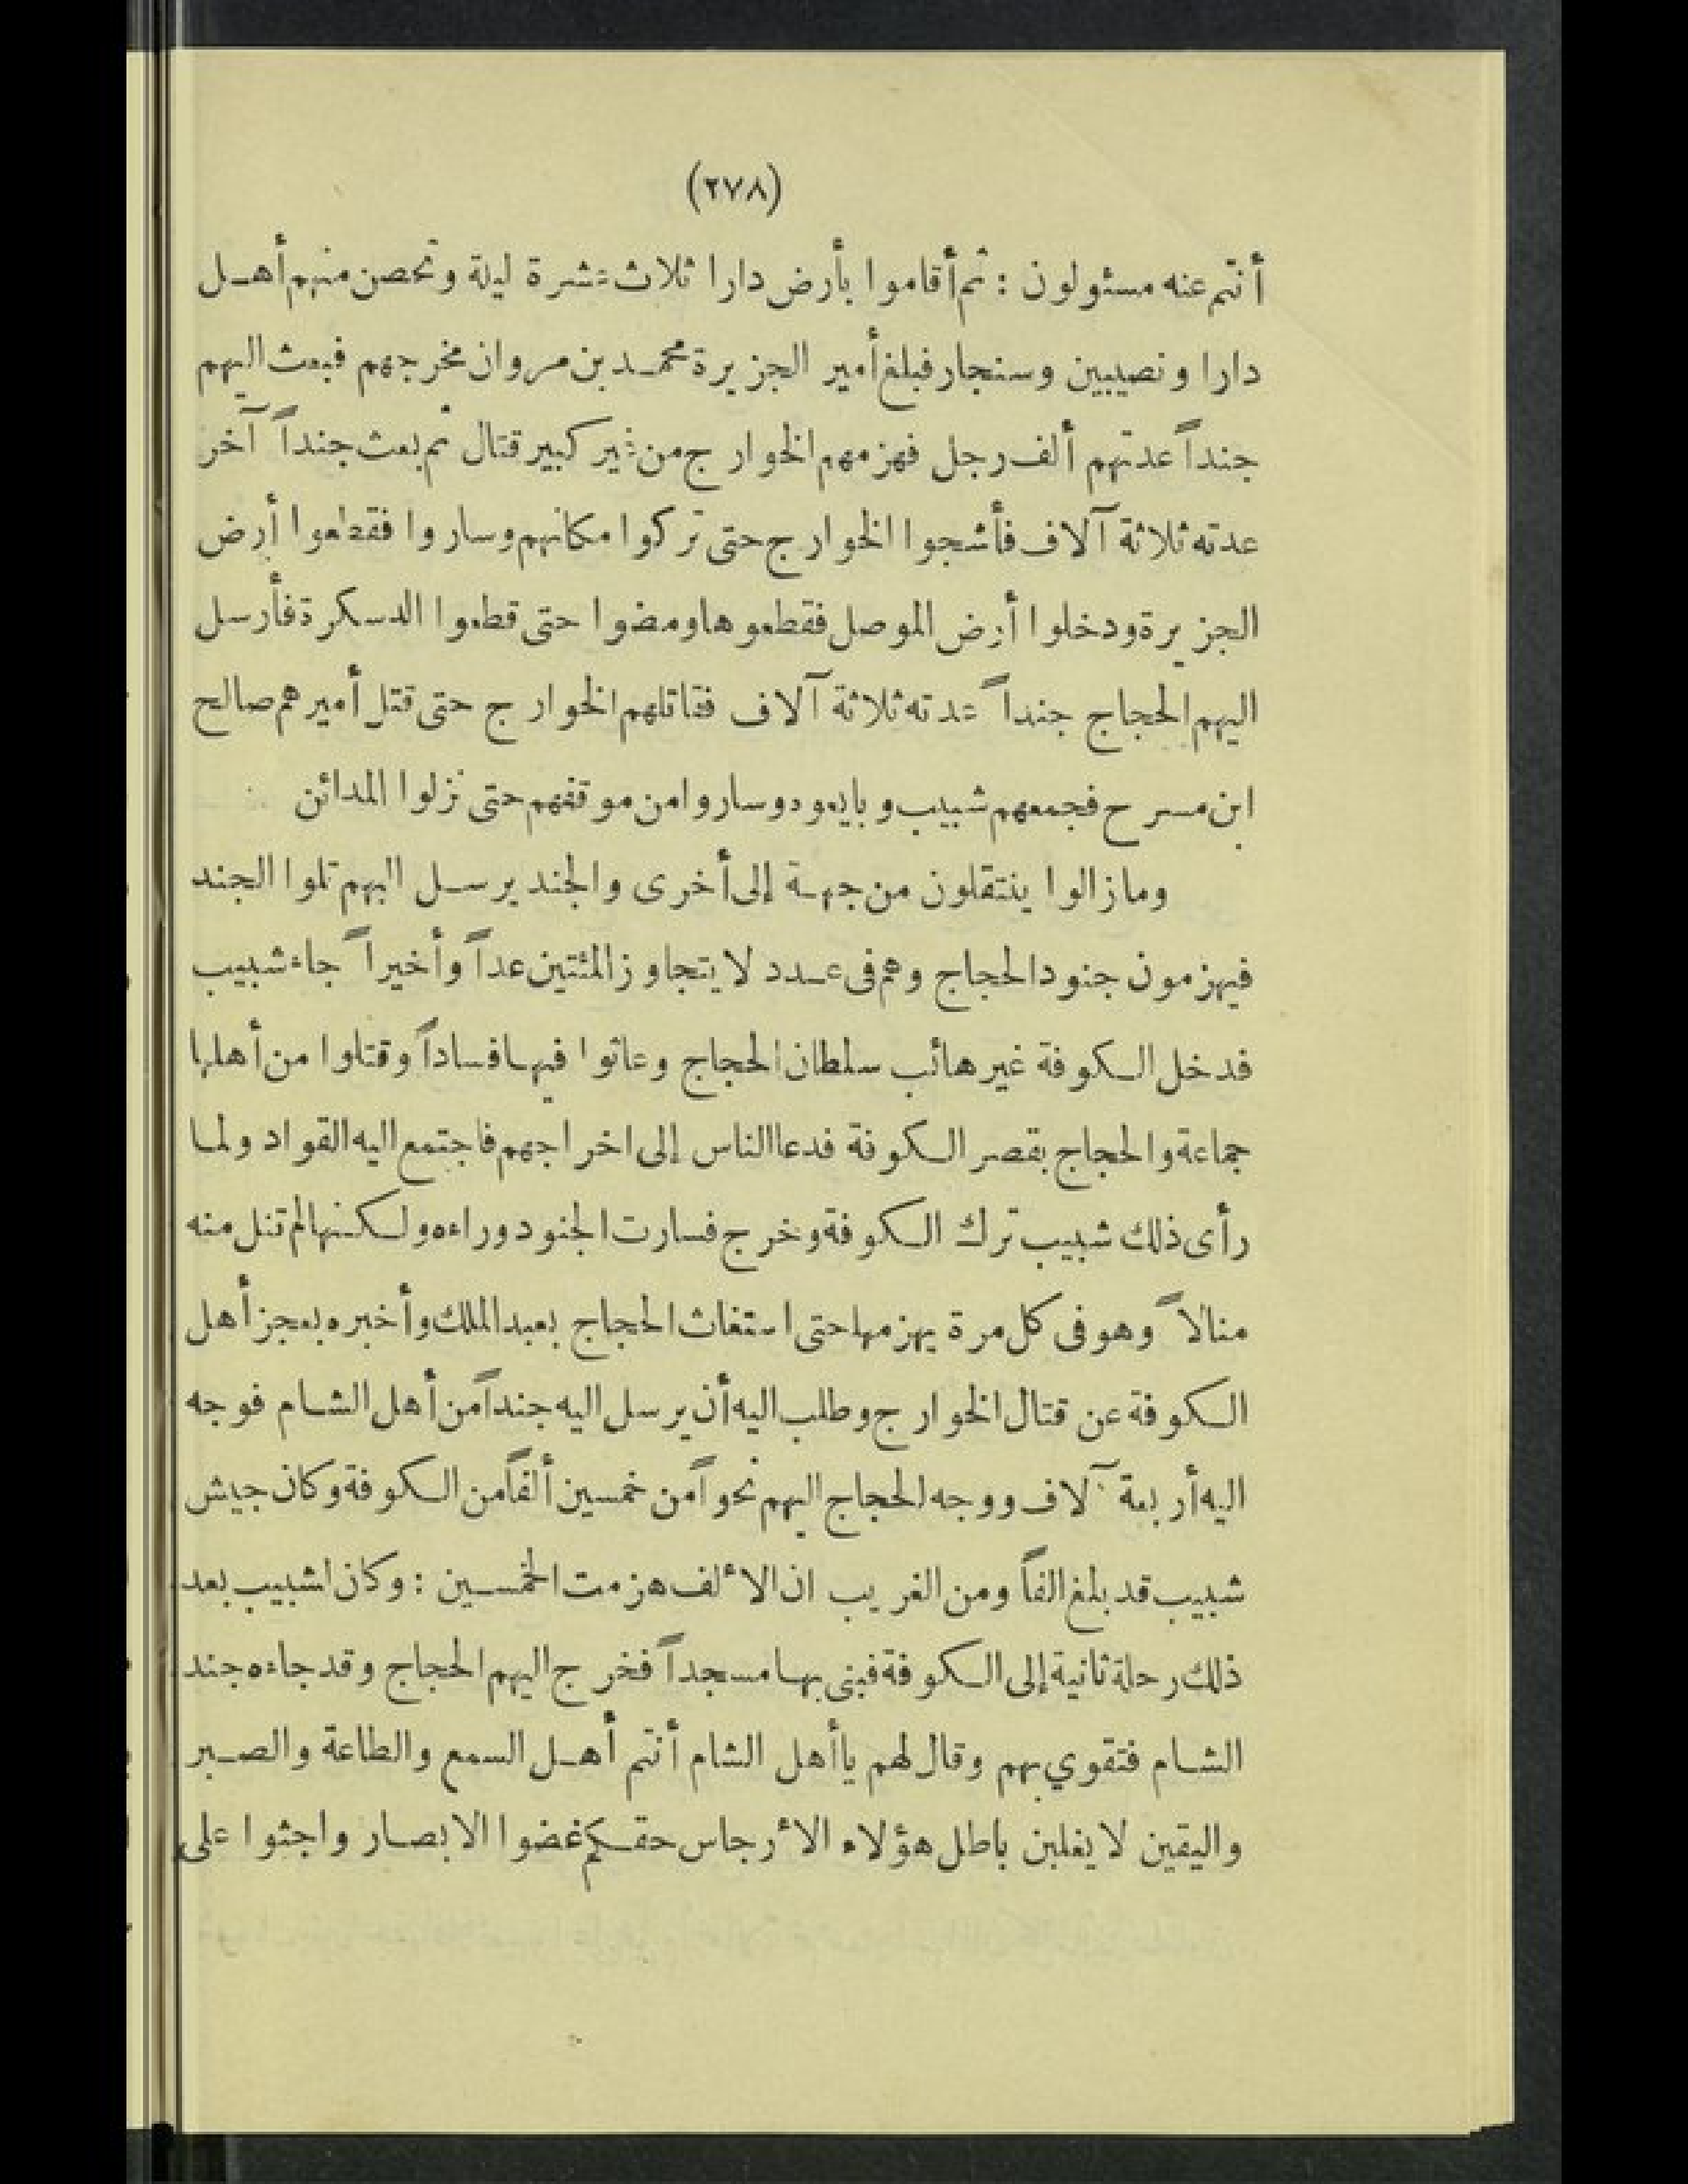 (٢٧٨)
أنتم عنه مسئولون : ثم أقاموا بأرض دارا ثلاث عشرة ليلة وتحصن منهم أهل
دارا ونصيبين وسنجار فبلغ أمير الجزيرة محمد بن مروان مخرجهم فبعث اليهم
جنداً عدتهم ألف رجل فهزمهم الخوارج من غير كبير قتال ثم بعث جنداً آخر
عدته ثلاثة آلاف فأشجوا الخوارج حتى تركوا مكانهم وساروا فقطعوا أرض
الجزيرة ودخلوا أرض الموصل فقطعوها ومضوا حتى قطعوا الدسكرة فأرسل
اليهم الحجاج جنداً عدته ثلاثة آلاف فقاتلهم الخوارج حتى قتل أميرهم صالح
ابن مسرح فجمعهم شبيب وبايعوه وساروا من موقفهم حتى نزلوا المدائن
وما زالوا ينتقلون من جهة إلى أخرى والجند يرسل اليهم تلوا الجند
فيهزمون جنود الحجاج وهم فى عدد لا يتجاوز المئتين عداً وأخيراً جاء شبيب
فدخل الكوفة غير هائب سلطان الحجاج وعاثوا فيها فساداً وقتلوا من أهلها
جماعة والحجاج بقصر الكوفة فدعا الناس إلى اخراجهم فاجتمع اليه القواد ولما
رأى ذلك شبيب ترك الكوفة وخرج فسارت الجنود وراءه ولكنها لم تنل منه
منالاً وهو فى كل مرة يهزمها حتى استغاث الحجاج بعبد الملك وأخبره بعجز أهل
الكوفة عن قتال الخوارج وطلب اليه أن يرسل اليه جنداً من أهل الشام فوجه
اليه أربعة آلاف ووجه الحجاج اليهم نحواً من خمسين ألفاً من الكوفة وكان جيش
شبيب قد بلغ الفاً ومن الغريب ان الألف هزمت الخمسين : وكان لشبيب بعد
ذلك رحلة ثانية إلى الكوفة فبنى بها مسجداً فخرج اليهم الحجاج وقد جاءه جند
الشام فتقوي بهم وقال لهم يا أهل الشام أنتم أهل السمع والطاعة والصبر
واليقين لا يغلبن باطل هؤلاء الأرجاس حقكم غضوا الابصار واجثوا على